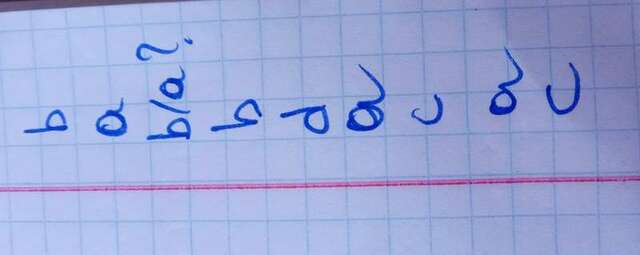 b
a
b/a?
b
d
a
c
a
c